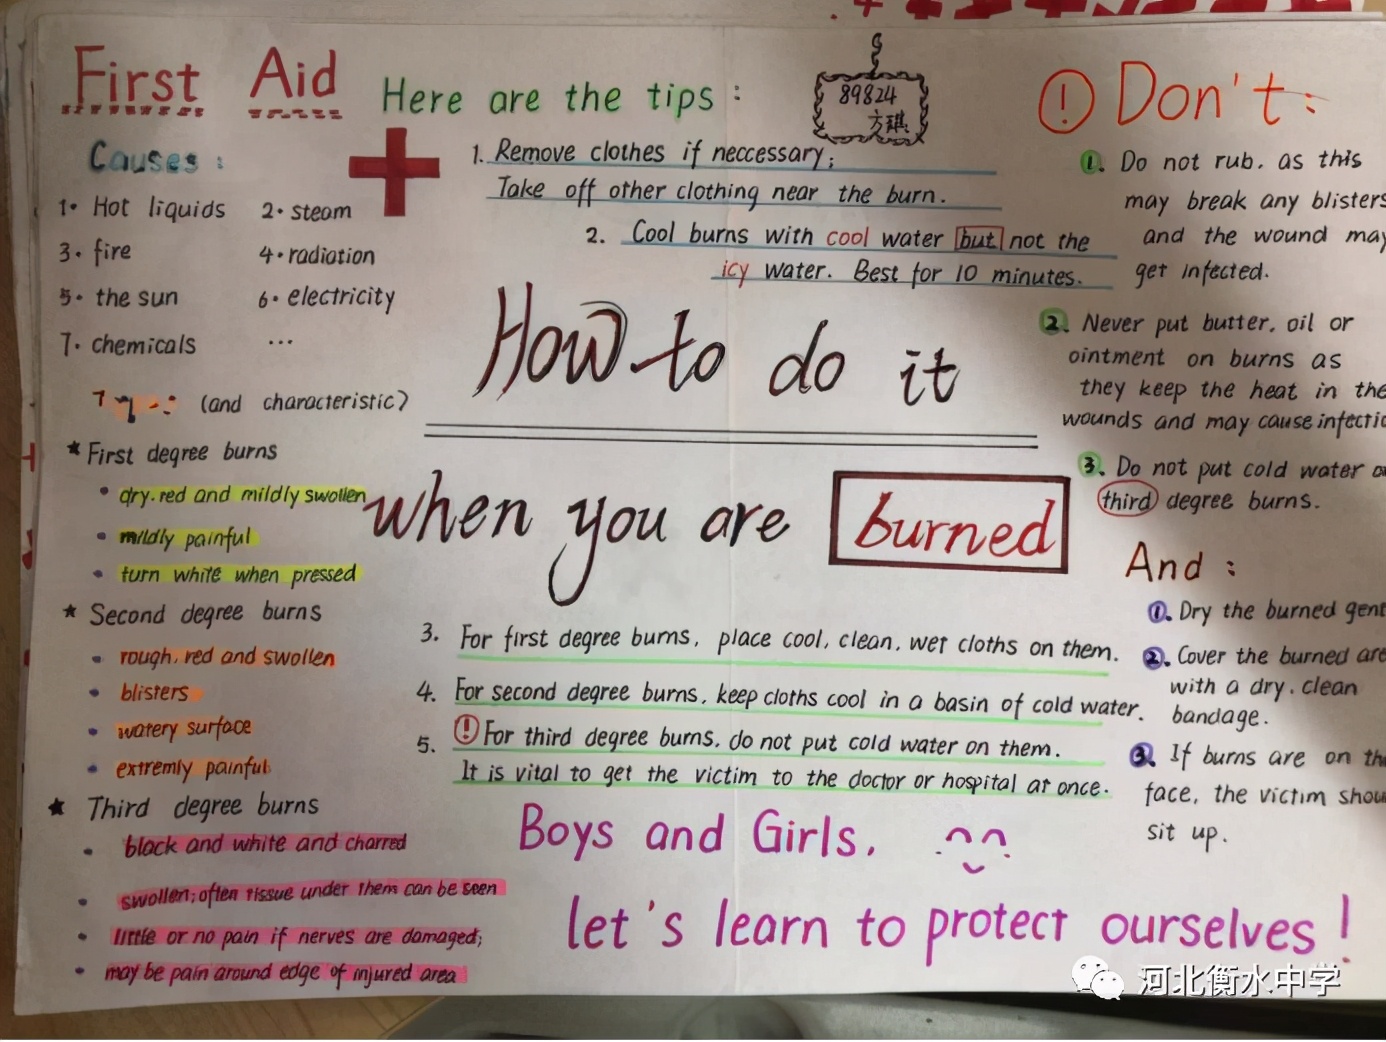 First Aid
Causes:
1. Hot liquids 2. steam
3. fire 4. radiation
5. the sun 6. electricity
7. chemicals ...
Types: (and characteristic)
★ First degree burns
• dry, red and mildly swollen
• mildly painful
• turn white when pressed
★ Second degree burns
• rough, red and swollen
• blisters
• watery surface
• extremly painful
★ Third degree burns
• black and white and charred
• swollen; often tissue under them can be seen
• little or no pain if nerves are damaged;
• may be pain around edge of injured area
Here are the tips:
89824
方琪
1. Remove clothes if neccessary;
Take off other clothing near the burn.
2. Cool burns with cool water but not the
icy water. Best for 10 minutes.
How to do it
when you are burned
3. For first degree burns, place cool, clean, wet cloths on them.
4. For second degree burns, keep cloths cool in a basin of cold water.
5. ! For third degree burns, do not put cold water on them.
It is vital to get the victim to the doctor or hospital at once.
Boys and Girls,
let's learn to protect ourselves!
! Don't:
1. Do not rub, as this
may break any blisters
and the wound may
get infected.
2. Never put butter, oil or
ointment on burns as
they keep the heat in the
wounds and may cause infectio
3. Do not put cold water o
third degree burns.
And:
1. Dry the burned gent
2. Cover the burned are
with a dry, clean
bandage.
3. If burns are on th
face, the victim shou
sit up.
河北衡水中学